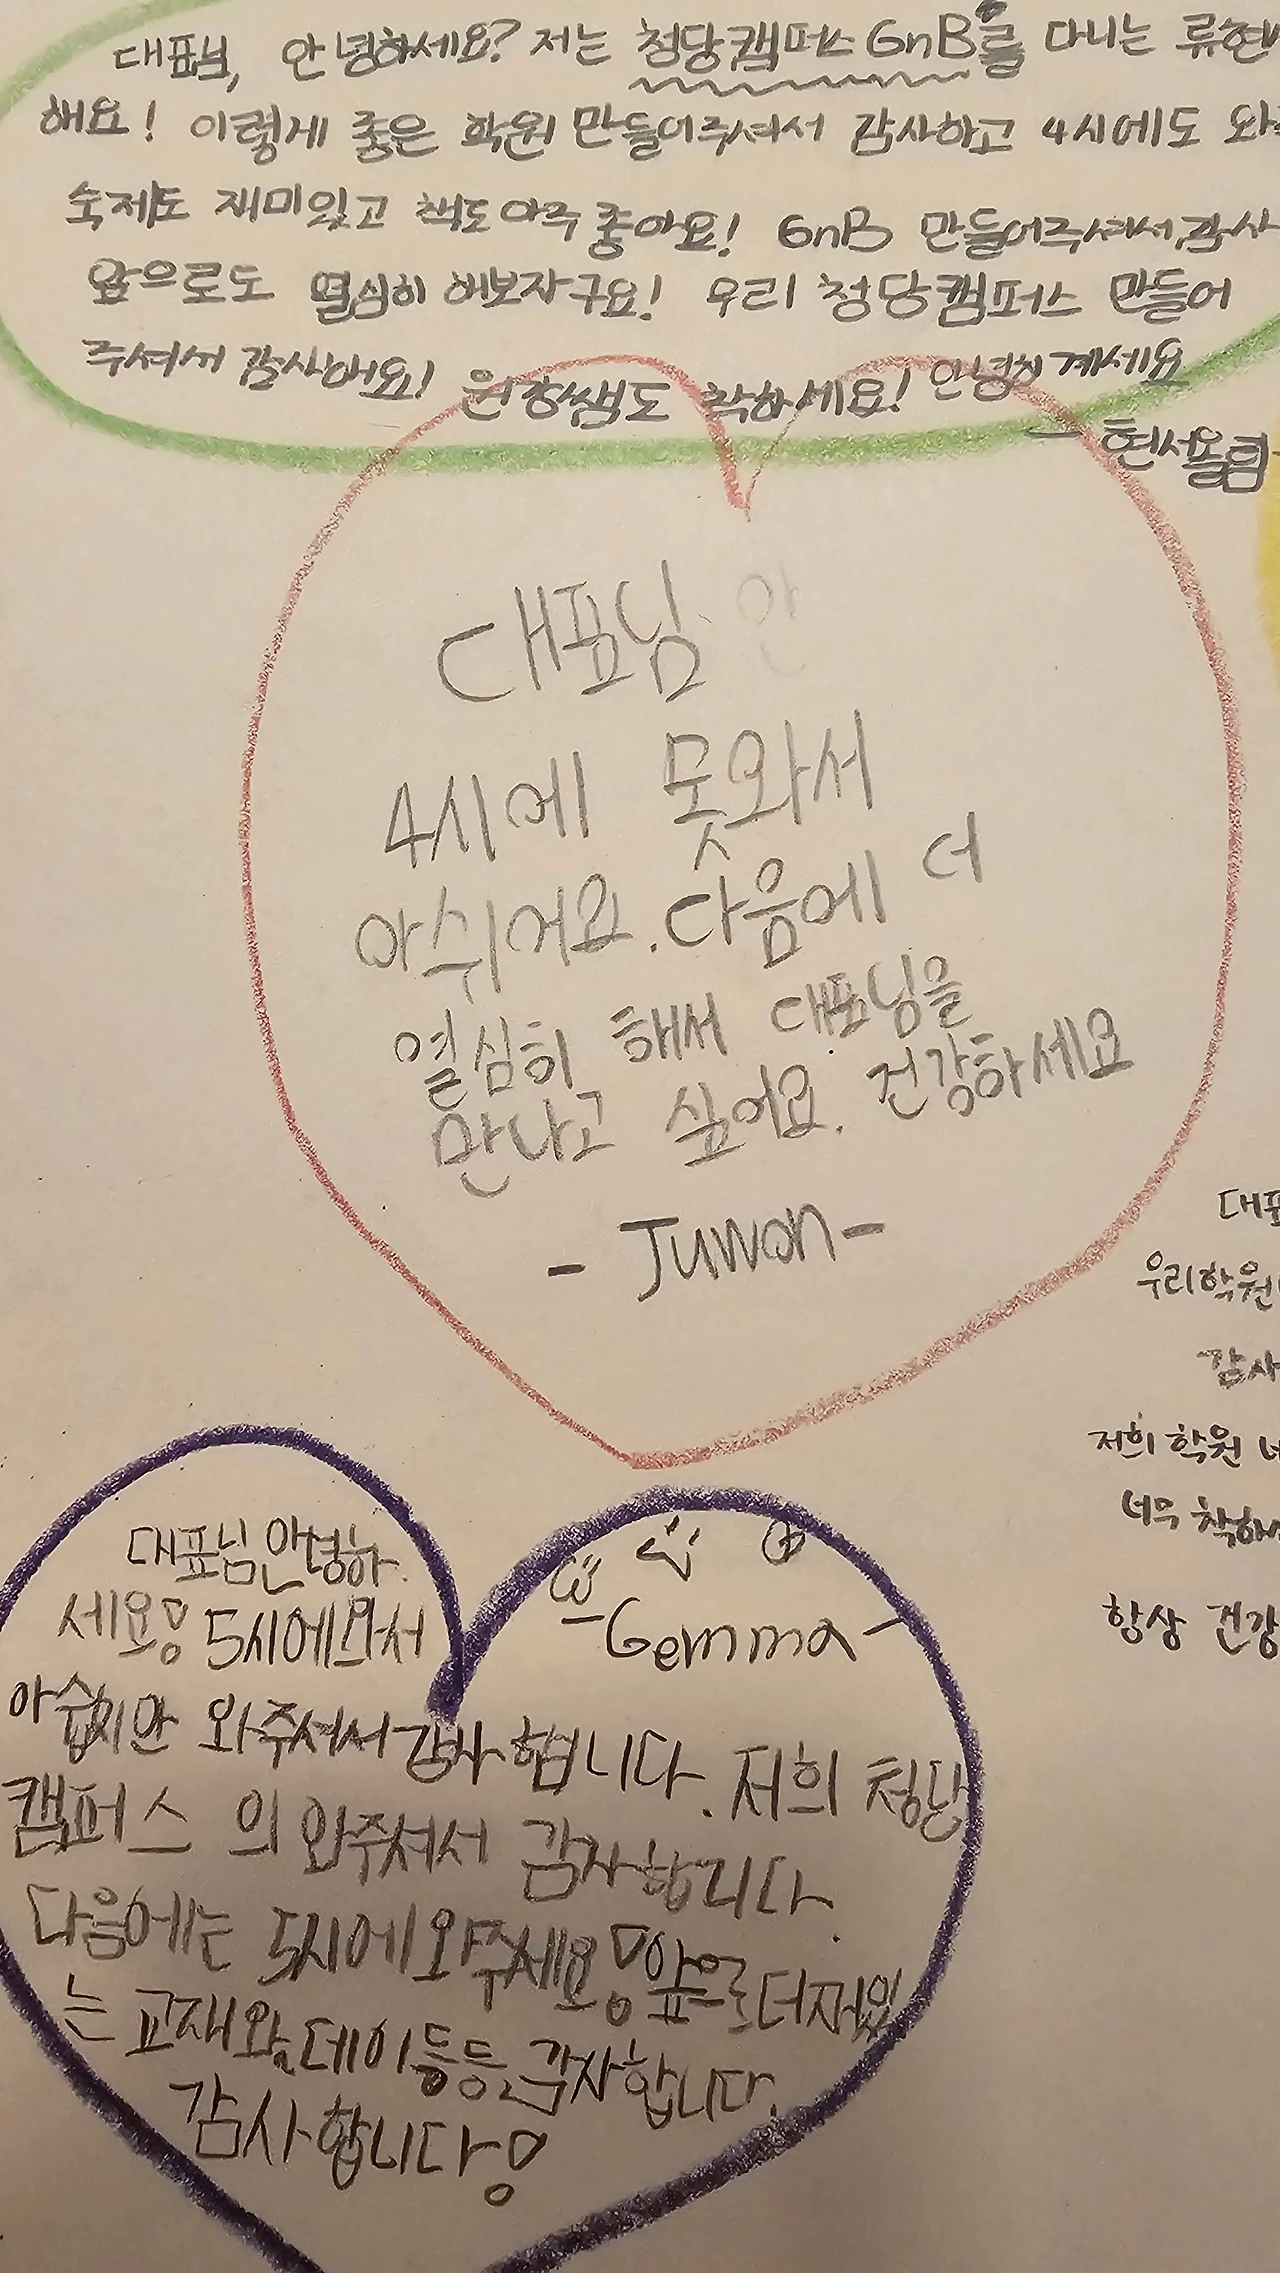 대표님, 안녕하세요? 저는 청당캠퍼스 GnB를 다니는 류현
해요! 이렇게 좋은 학원 만들어주셔서 감사하고 4시에도 와
숙제도 재미있고 책도 아주 좋아요! GnB 만들어주셔서 감사
앞으로도 열심히 해보자구요! 우리 청당캠퍼스 만들어
주셔서 감사해요! 원장쌤도 착하세요! 안녕히 계세요
- 현서올림
대표님 안
4시에 못와서
아쉬어요. 다음에 더
열심히 해서 대표님을
만나고 싶어요. 건강하세요
- Juwon -
대표
우리학원
감사
저희 학원
너무 착하
항상 건강
대표님 안녕하
세요! 5시에 와서
-Gemma-
아쉽지만 와주셔서 감사 합니다. 저희 청당
캠퍼스 의 와주셔서 감사합니다.
다음에는 5시에 와주세요! 앞으로 더 재있
는 교재와 데이 등등 감사합니다.
감사합니다!